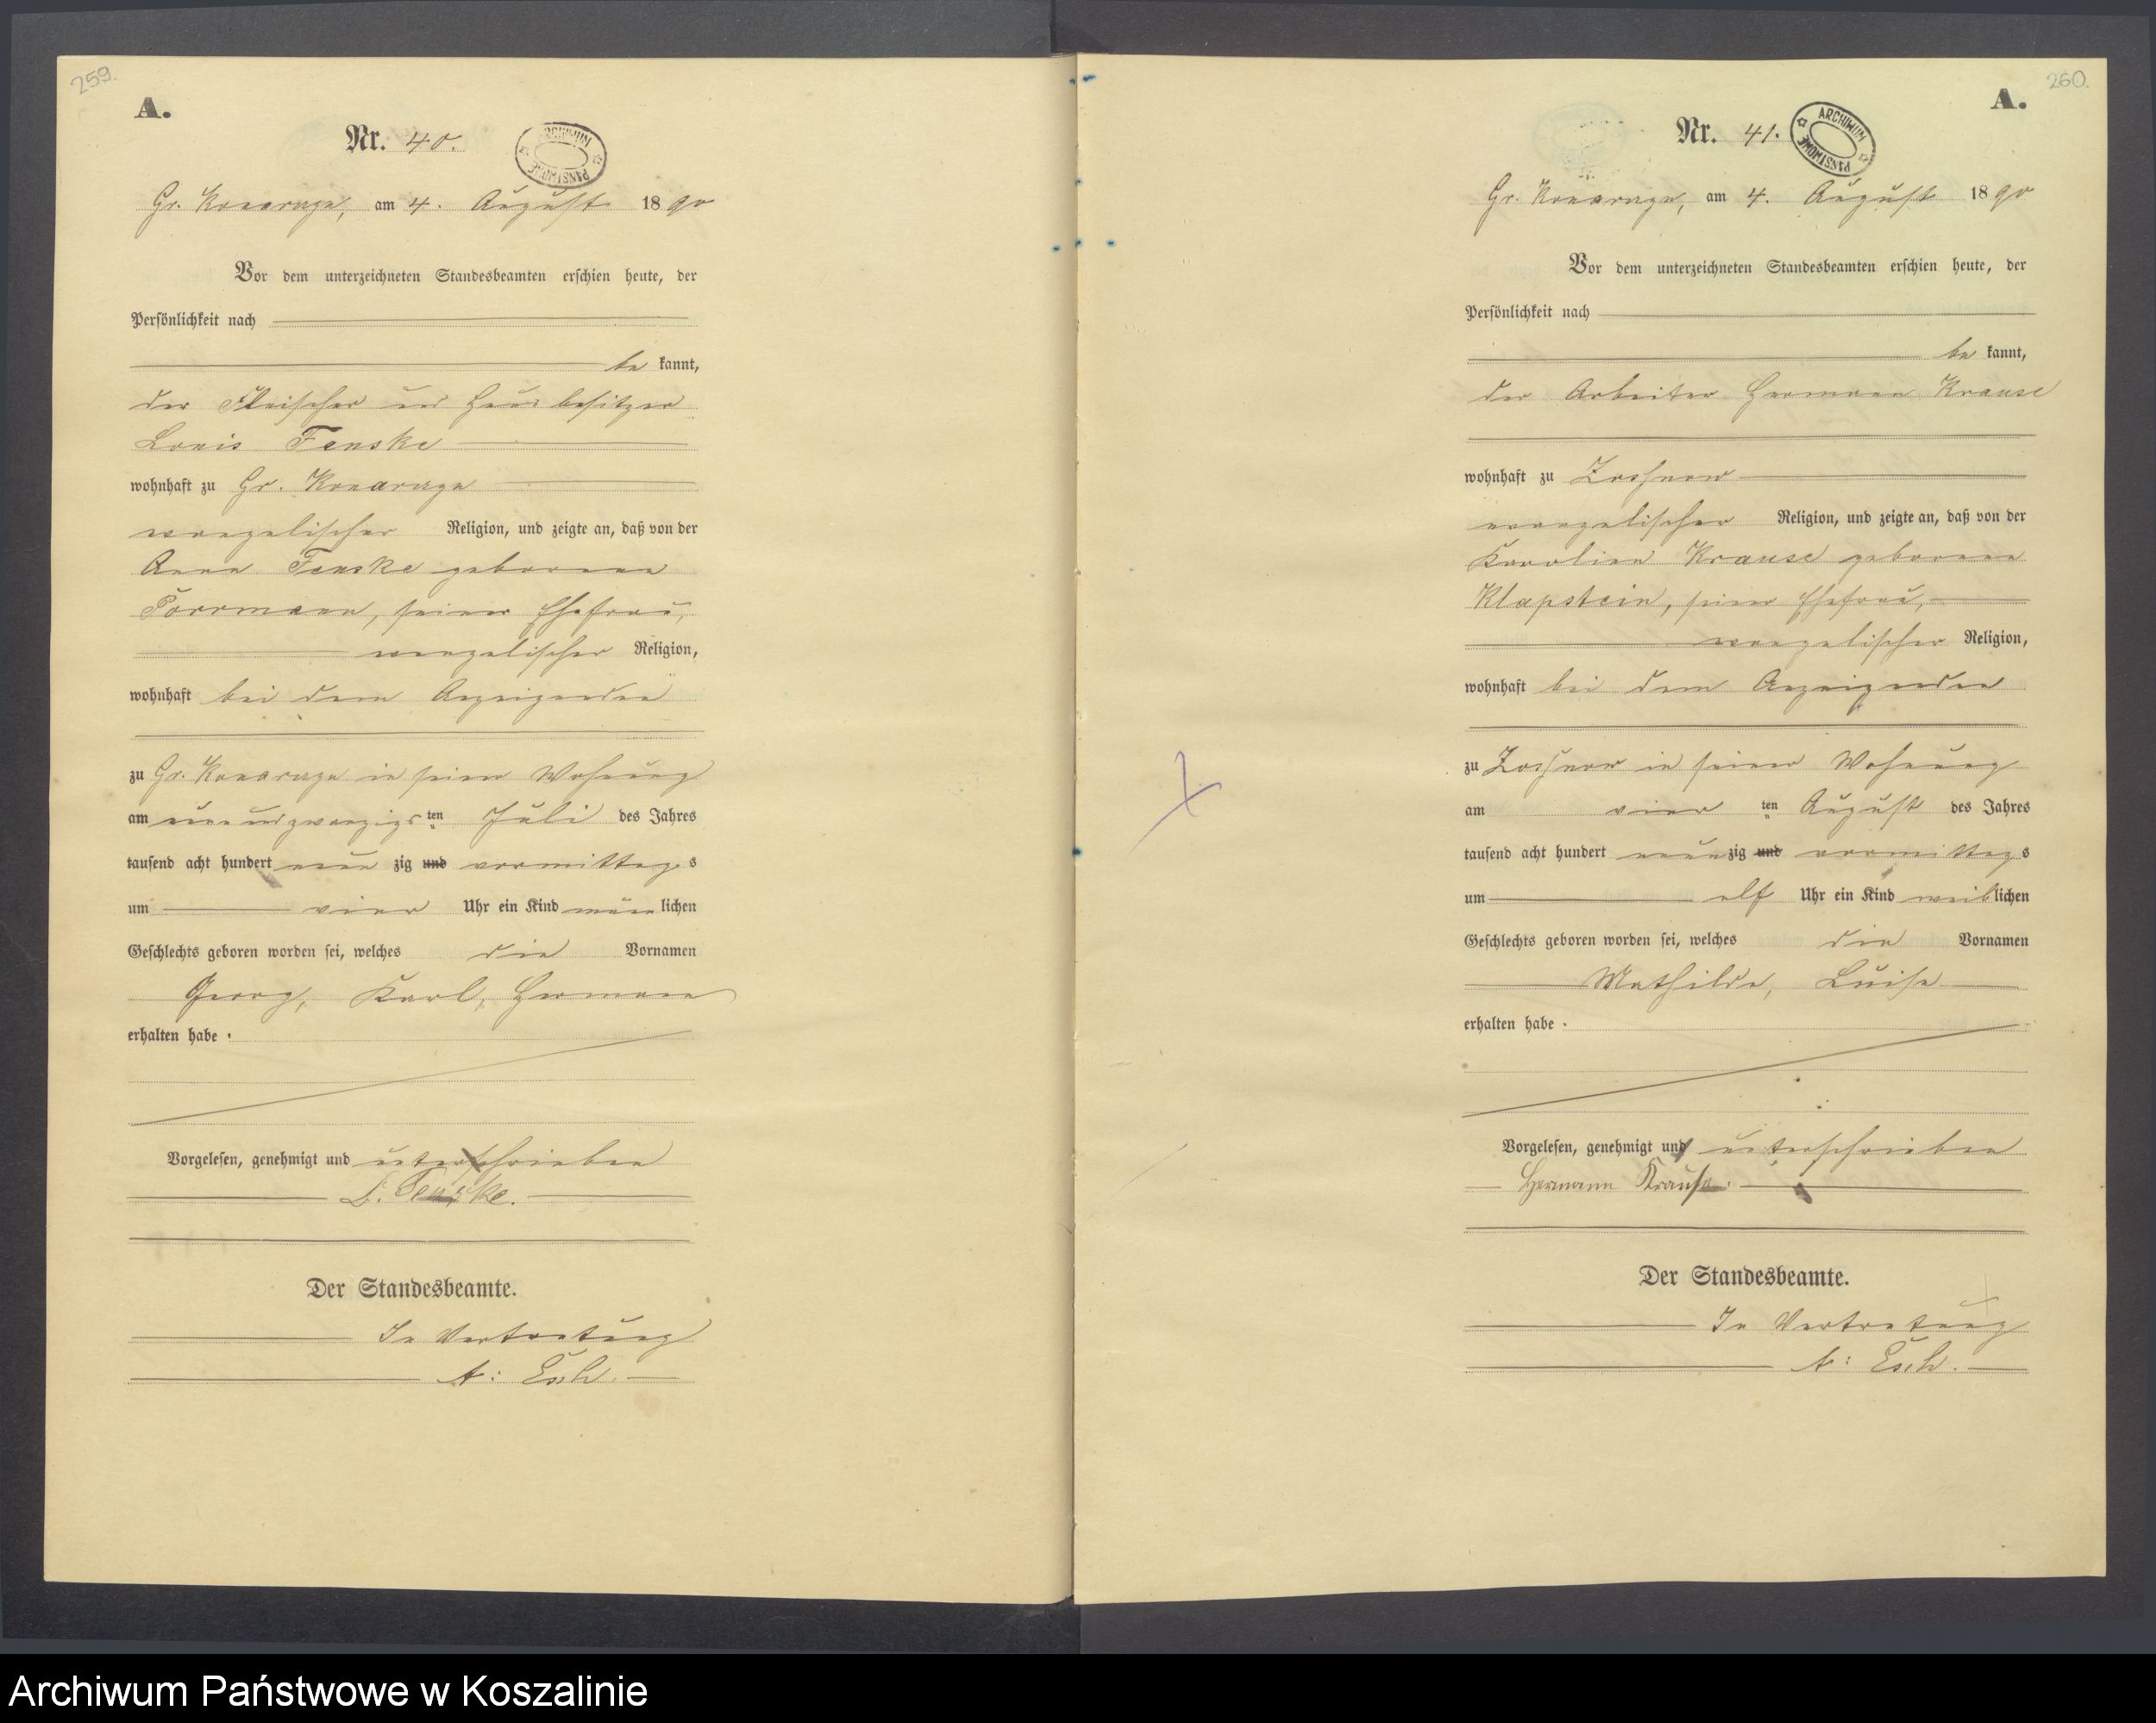 259.
A.
Nr. 40.
ARCHIWUM PAŃSTWOWE
Gr. Konarzyn, am 4. August 1890
Vor dem unterzeichneten Standesbeamten erschien heute, der
Persönlichkeit nach
be kannt,
der Fleischer und Hausbesitzer
Louis Fenske
wohnhaft zu Gr. Konarzyn
evangelischer Religion, und zeigte an, daß von der
Anna Fenske geborenen
Porrmann, seiner Ehefrau,
evangelischer Religion,
wohnhaft bei dem Anzeigenden
zu Gr. Konarzyn in seiner Wohnung
am neunundzwanzigsten Juli des Jahres
tausend acht hundert neun zig und vormittags
um vier Uhr ein Kind männlichen
Geschlechts geboren worden sei, welches die Vornamen
Georg, Karl, Hermann
erhalten habe.
Vorgelesen, genehmigt und unterschrieben
L. Fenske.
Der Standesbeamte.
In Vertretung
A: Esch.
260.
A.
Nr. 41.
ARCHIWUM PAŃSTWOWE
Gr. Konarzyn, am 4. August 1890
Vor dem unterzeichneten Standesbeamten erschien heute, der
Persönlichkeit nach
be kannt,
der Arbeiter Hermann Krause
wohnhaft zu
evangelischer Religion, und zeigte an, daß von der
Karoline Krause geborenen
Klapstein, seiner Ehefrau,
evangelischer Religion,
wohnhaft bei dem Anzeigenden
zu in seiner Wohnung
am vier ten August des Jahres
tausend acht hundert neunzig und vormittags
um elf Uhr ein Kind weiblichen
Geschlechts geboren worden sei, welches die Vornamen
Mathilde, Luise
erhalten habe.
Vorgelesen, genehmigt und unterschrieben
Hermann Krause.
Der Standesbeamte.
In Vertretung
A: Esch.
Archiwum Państwowe w Koszalinie